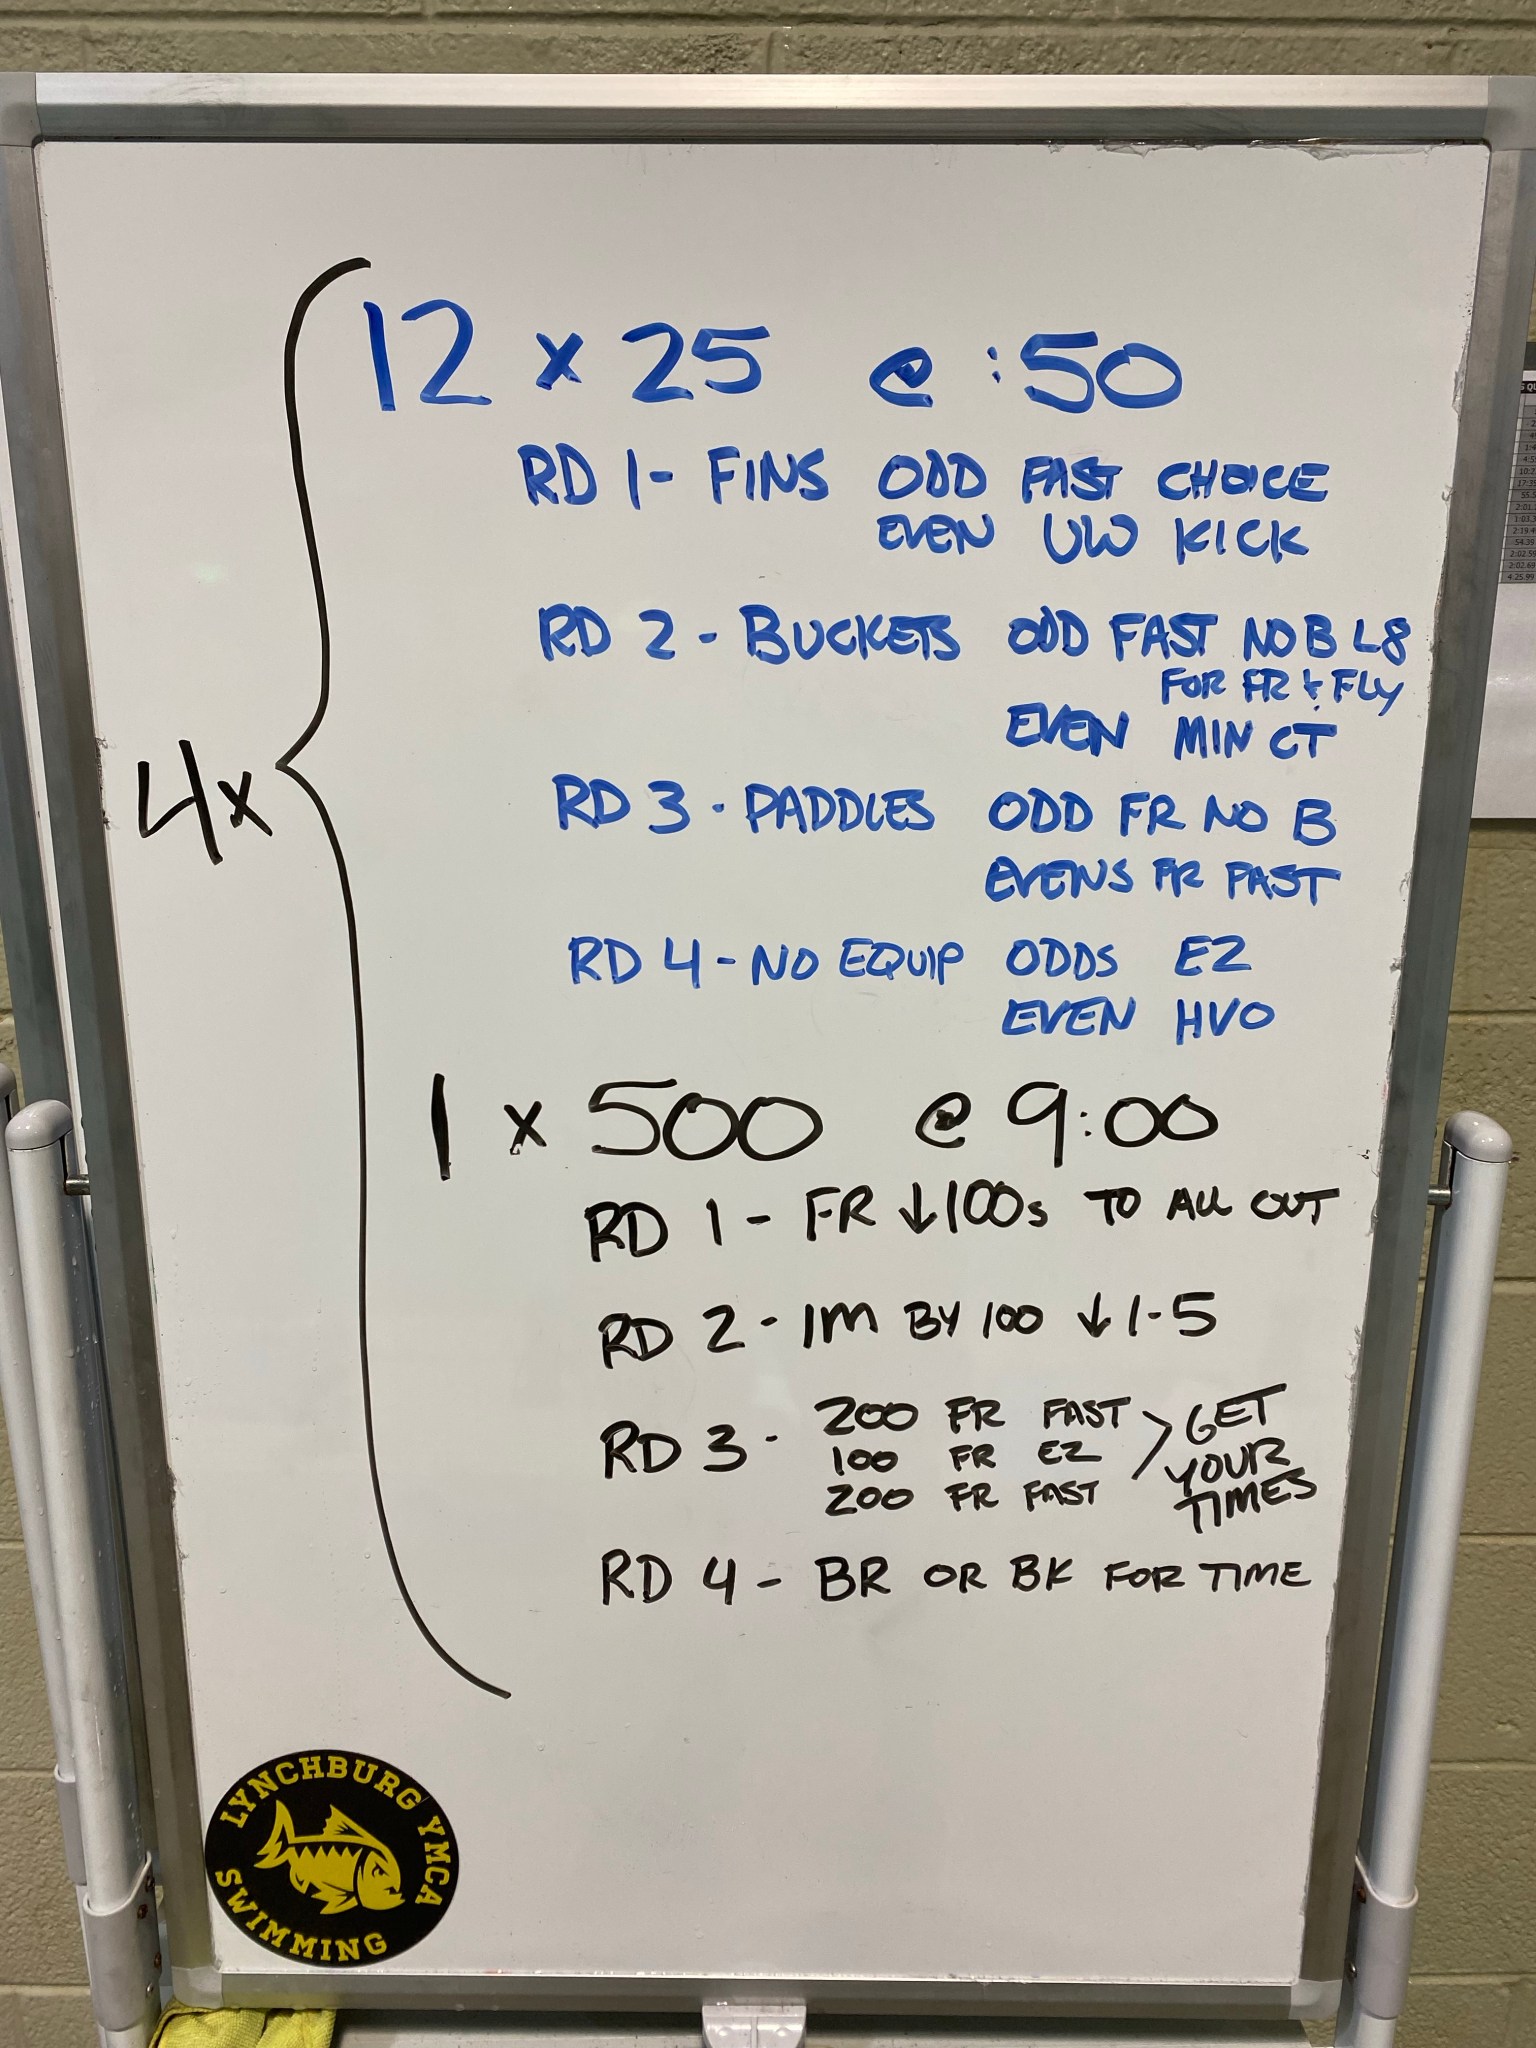 4x
12 x 25 @ :50
RD 1 - FINS ODD FAST CHOICE
EVEN UW KICK
RD 2 - BUCKETS ODD FAST NO B L8
FOR FR + FLY
EVEN MIN CT
RD 3 - PADDLES ODD FR NO B
EVENS FR FAST
RD 4 - NO EQUIP ODDS EZ
EVEN HVO
1 x 500 @ 9:00
RD 1 - FR ↓100s TO ALL OUT
RD 2 - IM BY 100 ↓ 1-5
RD 3 - 200 FR FAST > GET
100 FR EZ YOUR
200 FR FAST TIMES
RD 4 - BR OR BK FOR TIME
LYNCHBURG YMCA
SWIMMING